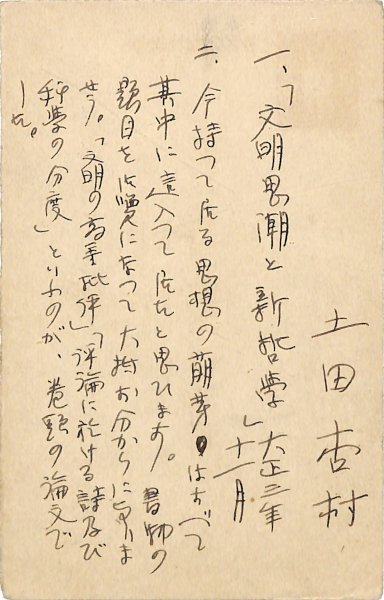 土田杏村
一、「文明思潮と新哲学」大正三年
十一月
二、今持つて居る思想の萠芽はすべて
其中に這入つて居たと思ひます。書物の
題目を御覧になつて大抵お分かりになりま
せう。「文明の高等批評」「評論に於ける詩及び
科学の分度」といふのが、巻頭の論文で
した。